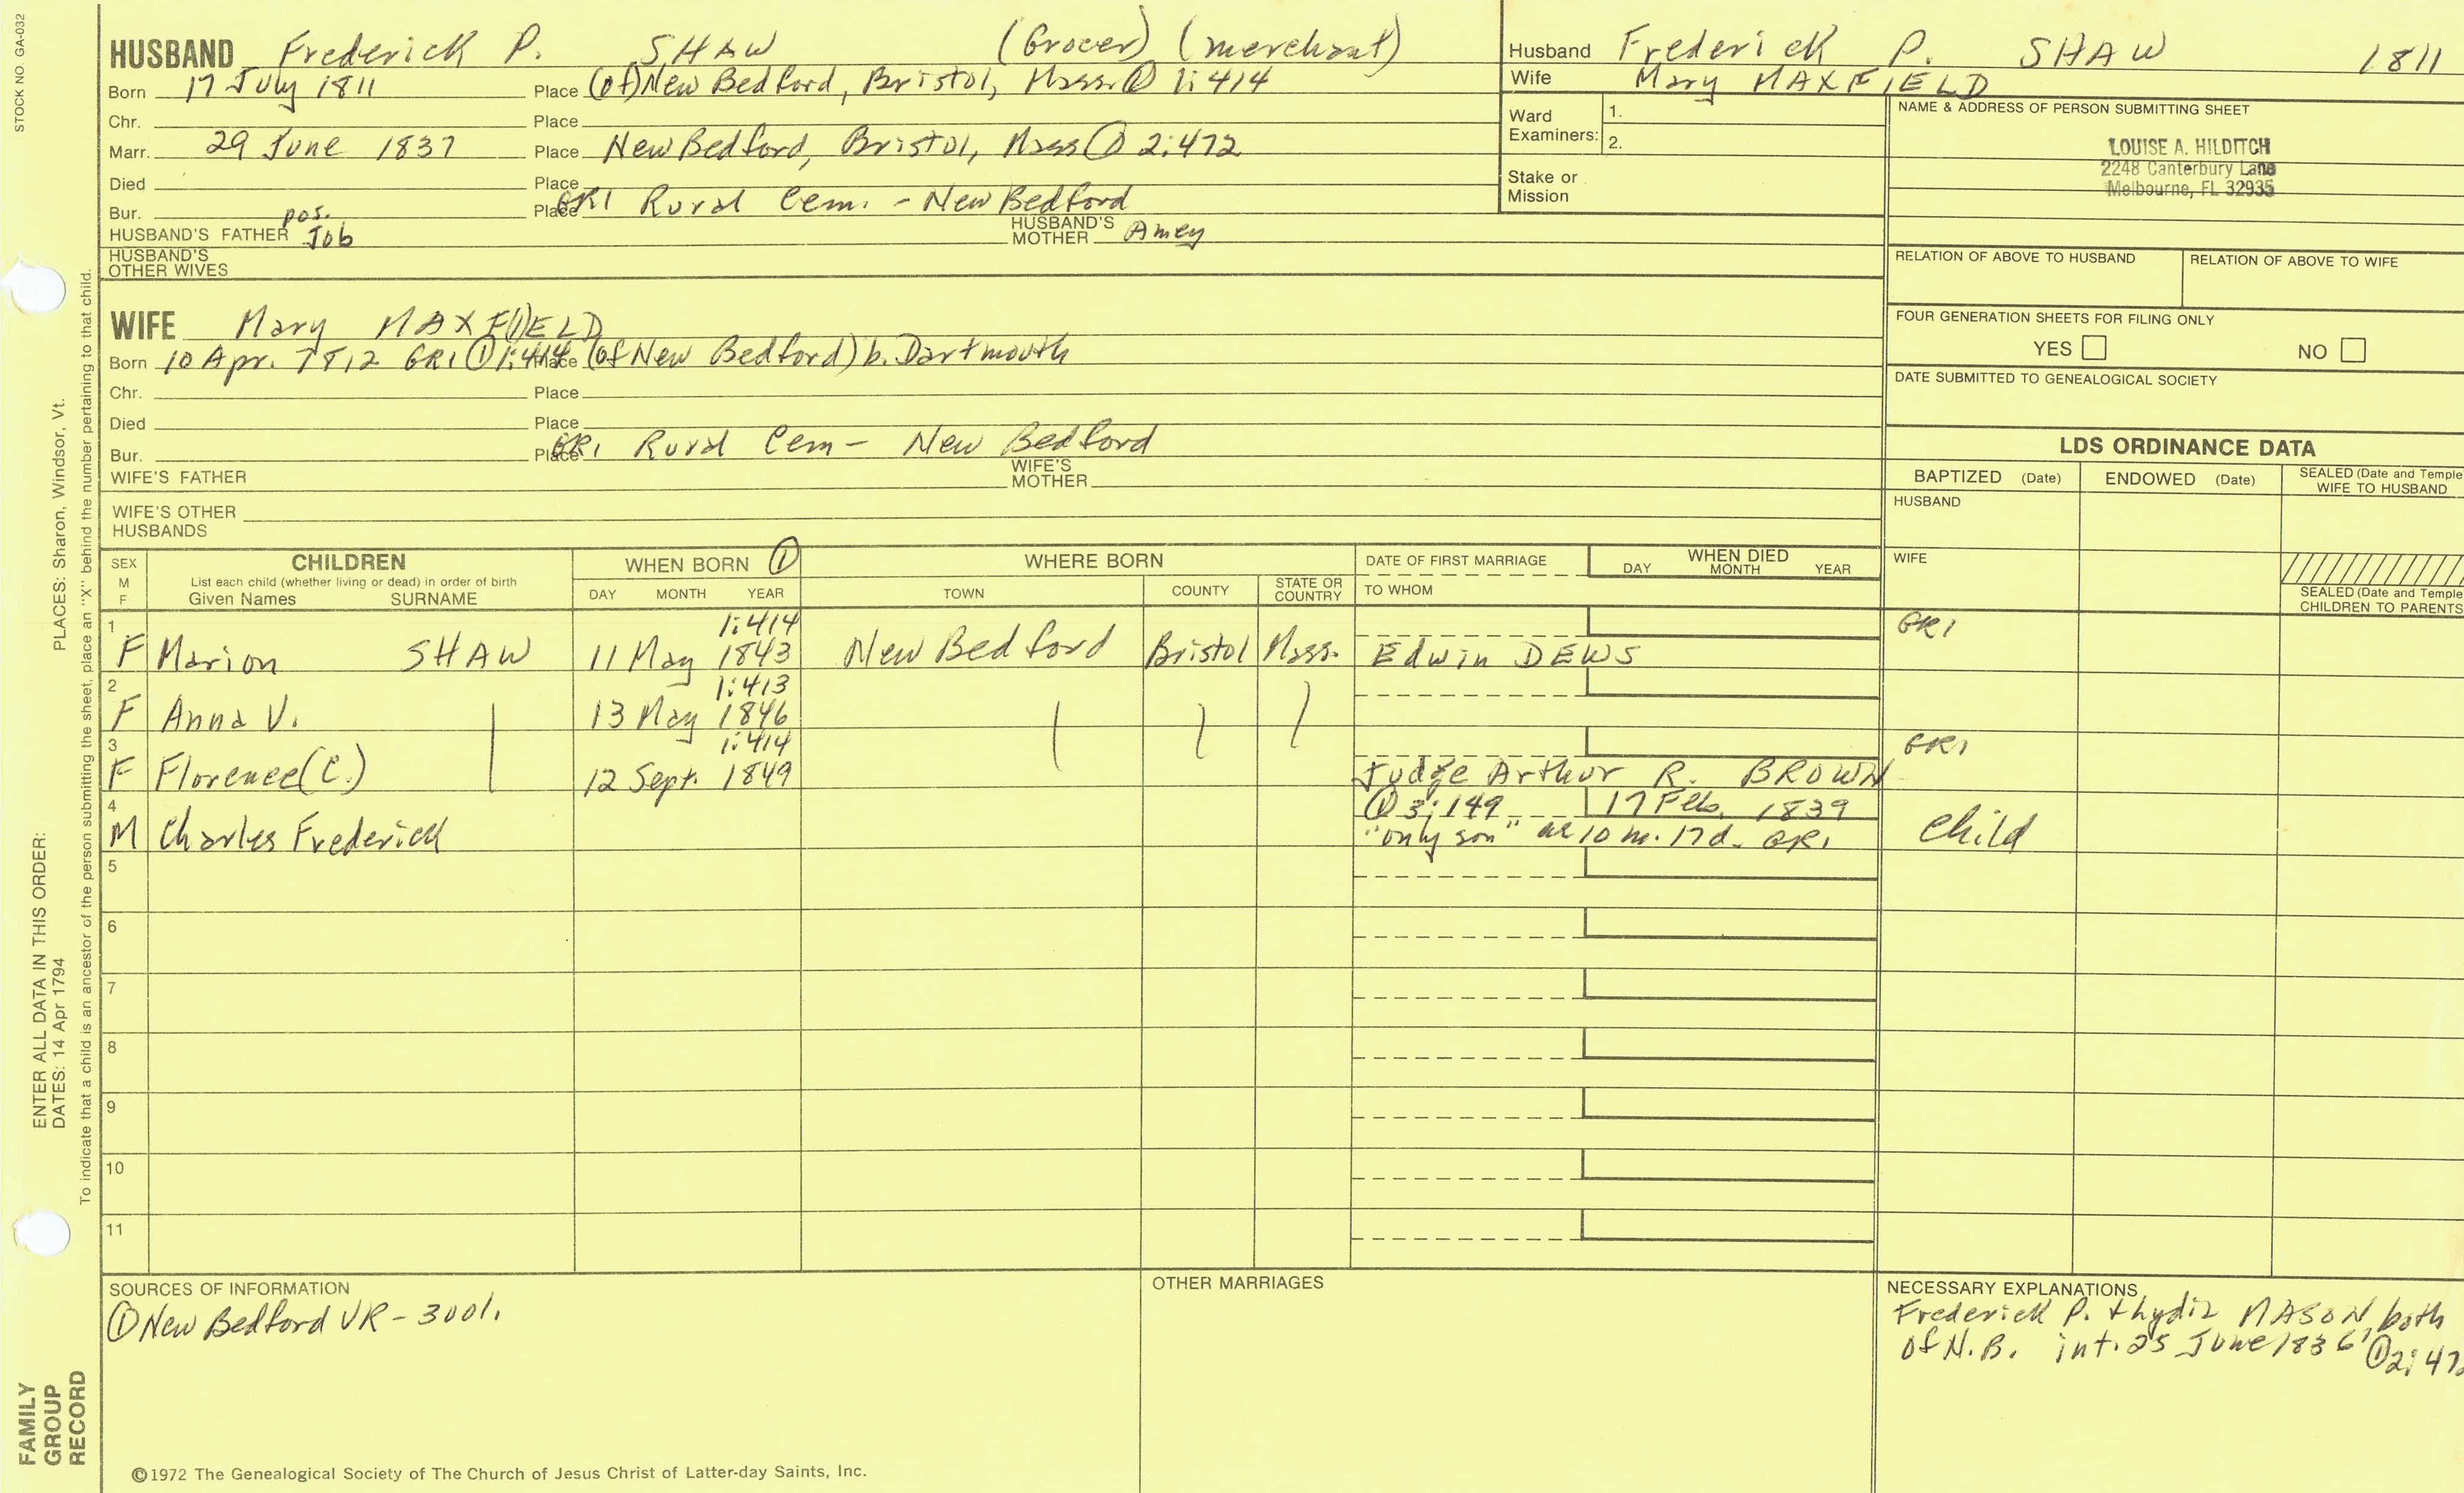 STOCK NO. GA-032
HUSBAND Frederick P. SHAW (Grocer) (merchant)
Born 17 July 1811 Place (of) New Bedford, Bristol, Mass. ① 1:414
Chr. Place
Marr. 29 June 1837 Place New Bedford, Bristol, Mass ① 2:472
Died Place
Bur. Place GR1 Rural Cem. - New Bedford
HUSBAND'S FATHER pos. Job HUSBAND'S MOTHER Amey
HUSBAND'S OTHER WIVES
Husband Frederick P. SHAW 1811
Wife Mary MAXFIELD
Ward Examiners: 1.
2.
Stake or Mission
NAME & ADDRESS OF PERSON SUBMITTING SHEET
LOUISE A. HILDITCH
2248 Canterbury Lane
Melbourne, FL 32935
RELATION OF ABOVE TO HUSBAND RELATION OF ABOVE TO WIFE
FOUR GENERATION SHEETS FOR FILING ONLY
YES NO
DATE SUBMITTED TO GENEALOGICAL SOCIETY
WIFE Mary MAXF(I)ELD
Born 10 Apr. 1812 GR1 ① 1:414 Place (of New Bedford) b. Dartmouth
Chr. Place
Died Place
Bur. Place GR1 Rural Cem - New Bedford
WIFE'S FATHER WIFE'S MOTHER
WIFE'S OTHER HUSBANDS
LDS ORDINANCE DATA
BAPTIZED (Date) ENDOWED (Date) SEALED (Date and Temple
WIFE TO HUSBAND
HUSBAND
WIFE
SEALED (Date and Temple
CHILDREN TO PARENTS
SEX M F CHILDREN WHEN BORN ① WHERE BORN DATE OF FIRST MARRIAGE WHEN DIED
List each child (whether living or dead) in order of birth
Given Names SURNAME DAY MONTH YEAR TOWN COUNTY STATE OR COUNTRY TO WHOM DAY MONTH YEAR
1 1:414 GR1
F Marion SHAW 11 May 1843 New Bedford Bristol Mass. Edwin DEWS
2 1:413
F Anna V. 13 May 1846
3 1:414 GR1
F Florence (C.) 12 Sept. 1849 Judge Arthur R. BROWN
4 ① 3:149 17 Feb. 1839
M Charles Frederick "only son" ae 10 m. 17 d. GR1 child
5
6
7
8
9
10
11
SOURCES OF INFORMATION
① New Bedford VR - 3001.
OTHER MARRIAGES
NECESSARY EXPLANATIONS
Frederick P. & Lydia MASON, both
of N.B. int. 25 June 1836 ① 2:472
PLACES: Sharon, Windsor, Vt.
To indicate that a child is an ancestor of the person submitting the sheet, place an "X" behind the number pertaining to that child.
ENTER ALL DATA IN THIS ORDER:
DATES: 14 Apr 1794
FAMILY
GROUP
RECORD
©1972 The Genealogical Society of The Church of Jesus Christ of Latter-day Saints, Inc.